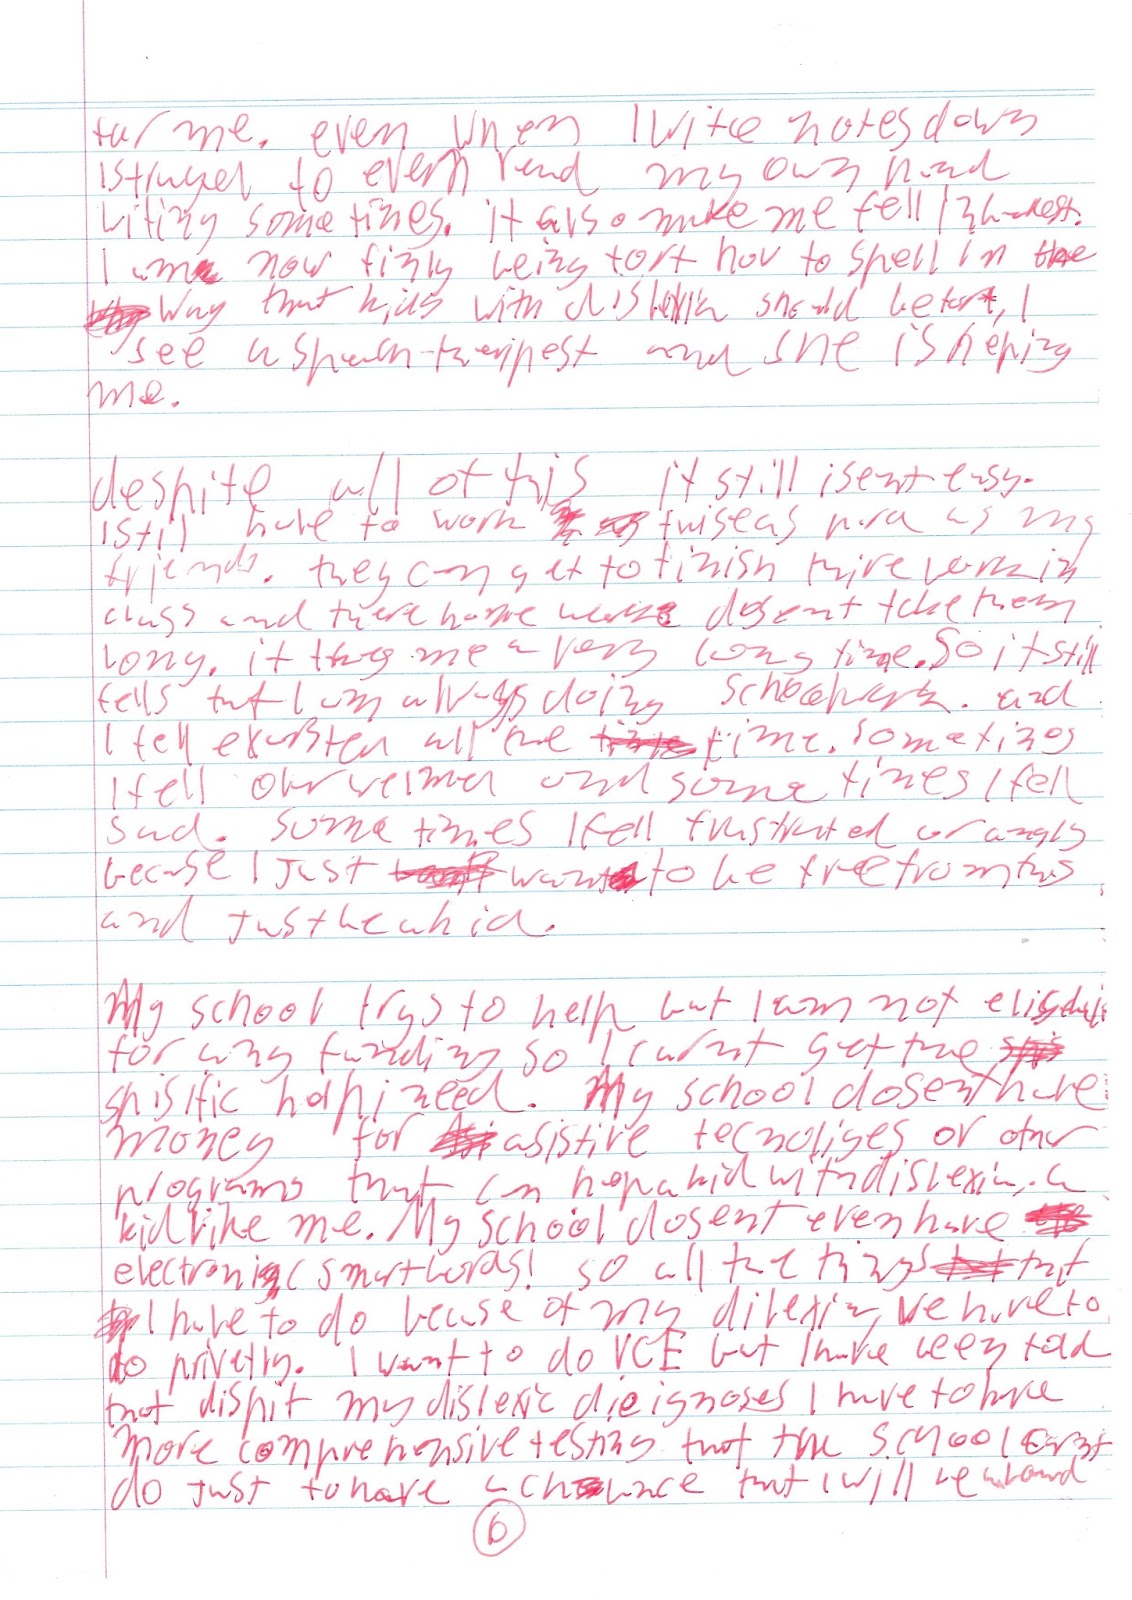 for me. even when I write notes down
I strugel to even read my own hand
writing some times. it also make me fell
I am now finly being tort how to spell in the
way that kids with should be tort, I
see a speach-theripest and she is heping
me.
despite all of this it still isent easy.
I still have to work twise as hard as my
friends. they can get to finish thire work in
class and there home work dosent take them
long. it takes me a very long time. So it still
fells that I am always doing schoolwork. and
I fell exorsted all the time. sometimes
I fell and some times I fell
sad. some times I fell frustrated or angry
becase I just want to be free from this
and just be a kid.
My school trys to help but I am not
for any funding so I carnt get the
spisific help i need. My school dosent have
money for asistive tecnoliges or other
programs that can hepa kid with dislexia, a
kid like me. My school dosent even have
electronic smartbords! so all the things that
I have to do becase of my dilexia, we have to
do privetly. I want to do VCE but I have been told
that dispit my dislexic dieignoses I have to have
more comprehensive testing that the school carnt
do just to have a chance that I will be alowd
6